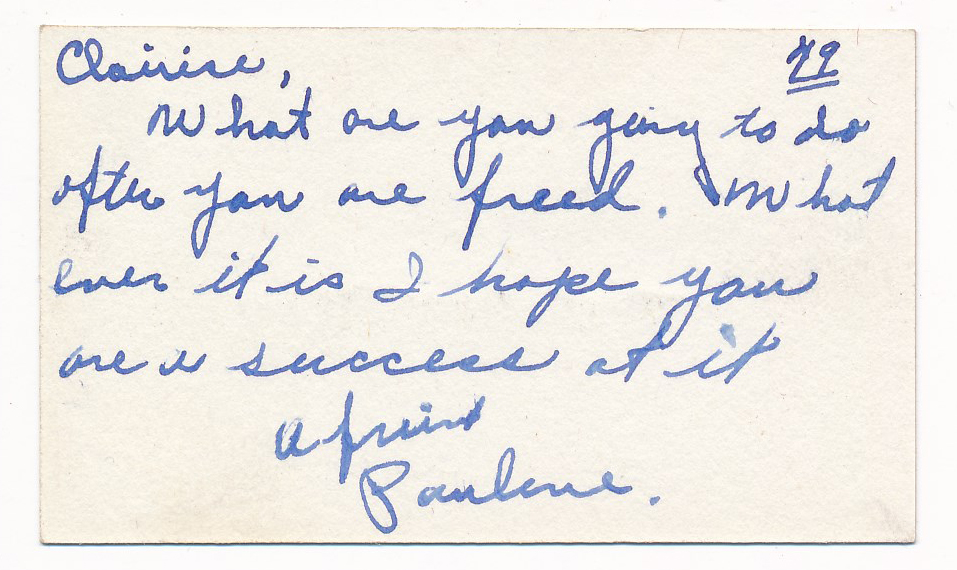 Clairise, 49
What are you going to do
after you are freed. What
ever it is I hope you
are a success at it
A freind
Paulene.